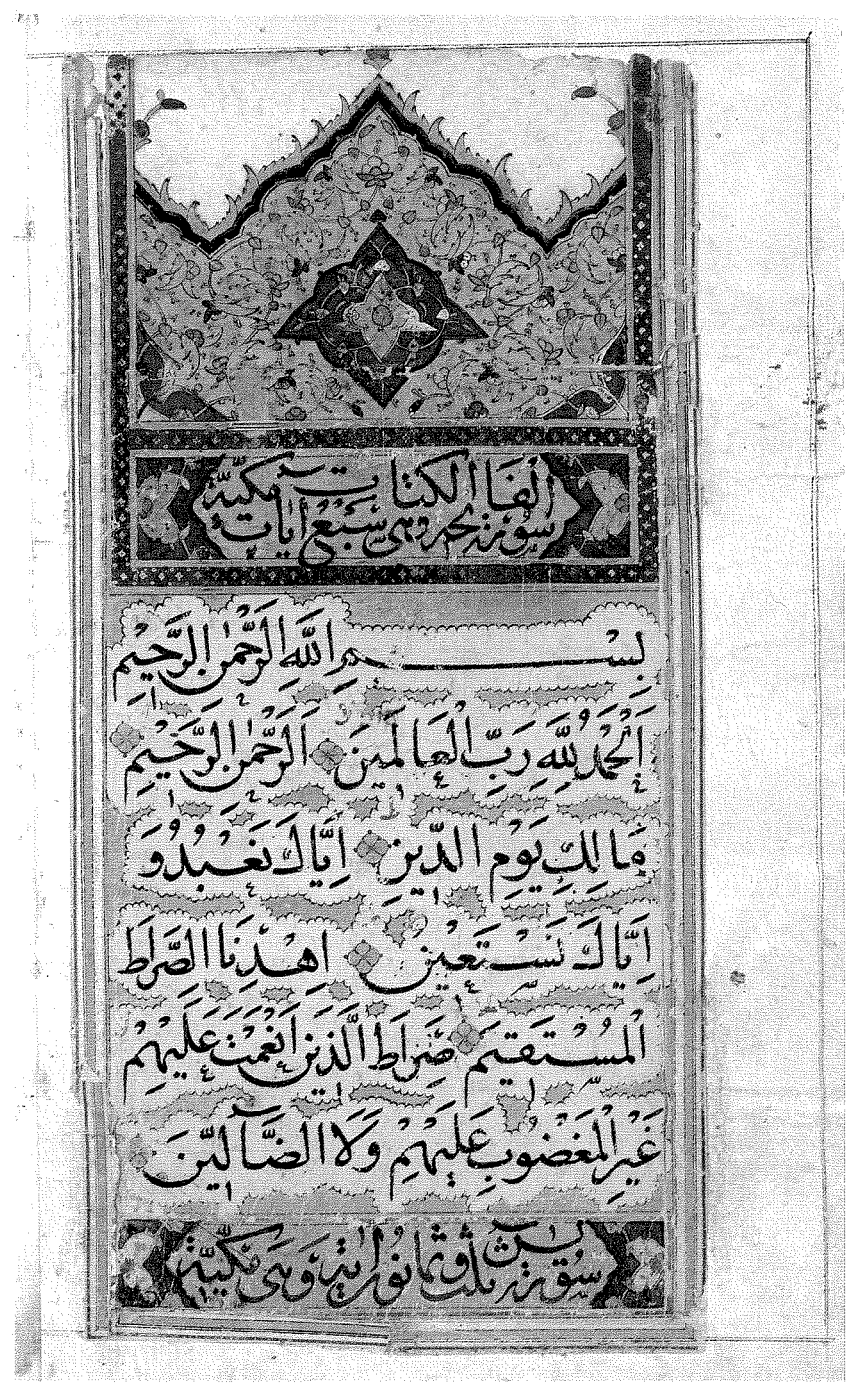 سورة الفاتحة الكتاب مكية
وهي سبع آيات
بِسْمِ اللَّهِ الرَّحْمٰنِ الرَّحِيمِ
اَلْحَمْدُ لِلَّهِ رَبِّ الْعَالَمِينَ اَلرَّحْمٰنِ الرَّحِيمِ
مَالِكِ يَوْمِ الدِّينِ اِيَّاكَ نَعْبُدُ وَ
اِيَّاكَ نَسْتَعِينُ اِهْدِنَا الصِّرَاطَ
الْمُسْتَقِيمَ صِرَاطَ الَّذِينَ اَنْعَمْتَ عَلَيْهِمْ
غَيْرِ الْمَغْضُوبِ عَلَيْهِمْ وَلَا الضَّآلِّينَ
سورة يس ثلث وثمانون اية وهي مكية